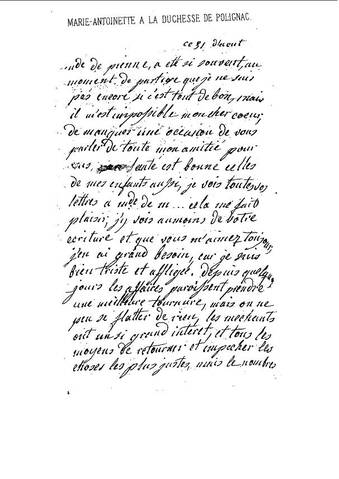 MARIE-ANTOINETTE A LA DUCHESSE DE POLIGNAC.
ce 31 decent
mde de pienne, a eté si souvent, au
moment, de partir que je ne suis
pas encore si c'est tout de bon, mais
il m'est impossible mon cher coeur,
de manquer une occasion de vous
parler de toute mon amitié pour
vous, santé est bonne celles
de mes enfants aussi, je vois toutes vos
lettres a mde de m... cela me fait
plaisir, j'y vois aumoins de votre
ecriture et que vous m'aimez toujours
j'en ai grand besoin, car je suis
bien triste et affligée. depuis quelques
jours les affaires paroissent prendre
une meilleure tournure, mais on ne
peu se flatter de rien, les mechants
ont un si grand interet, et tous les
moyens de retourner et empecher les
choses les plus justes, mais le nombres